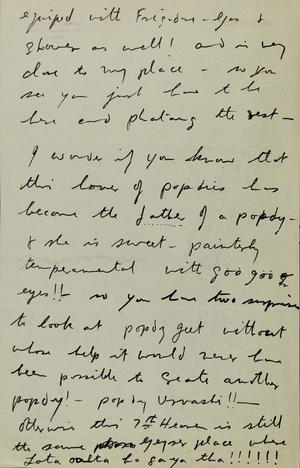 equipd with Frigidre - Gas &
shower as well! and is very
close to my place - so you
see you just have to be
here and the rest -
I wonder if you know that
this lover of popdies has
become the father of a popdy -
& she is sweet - painterly
temperamental with goo goo
eyes!! so you have two surprises
to look at popdy geet without
whose help it would never have
been possible to create another
popdy! - popdy Urvashi!!
Otherwise this 7th Heaven is still
the same geyser place where
Lota oolta ho gaya tha!!!!!!